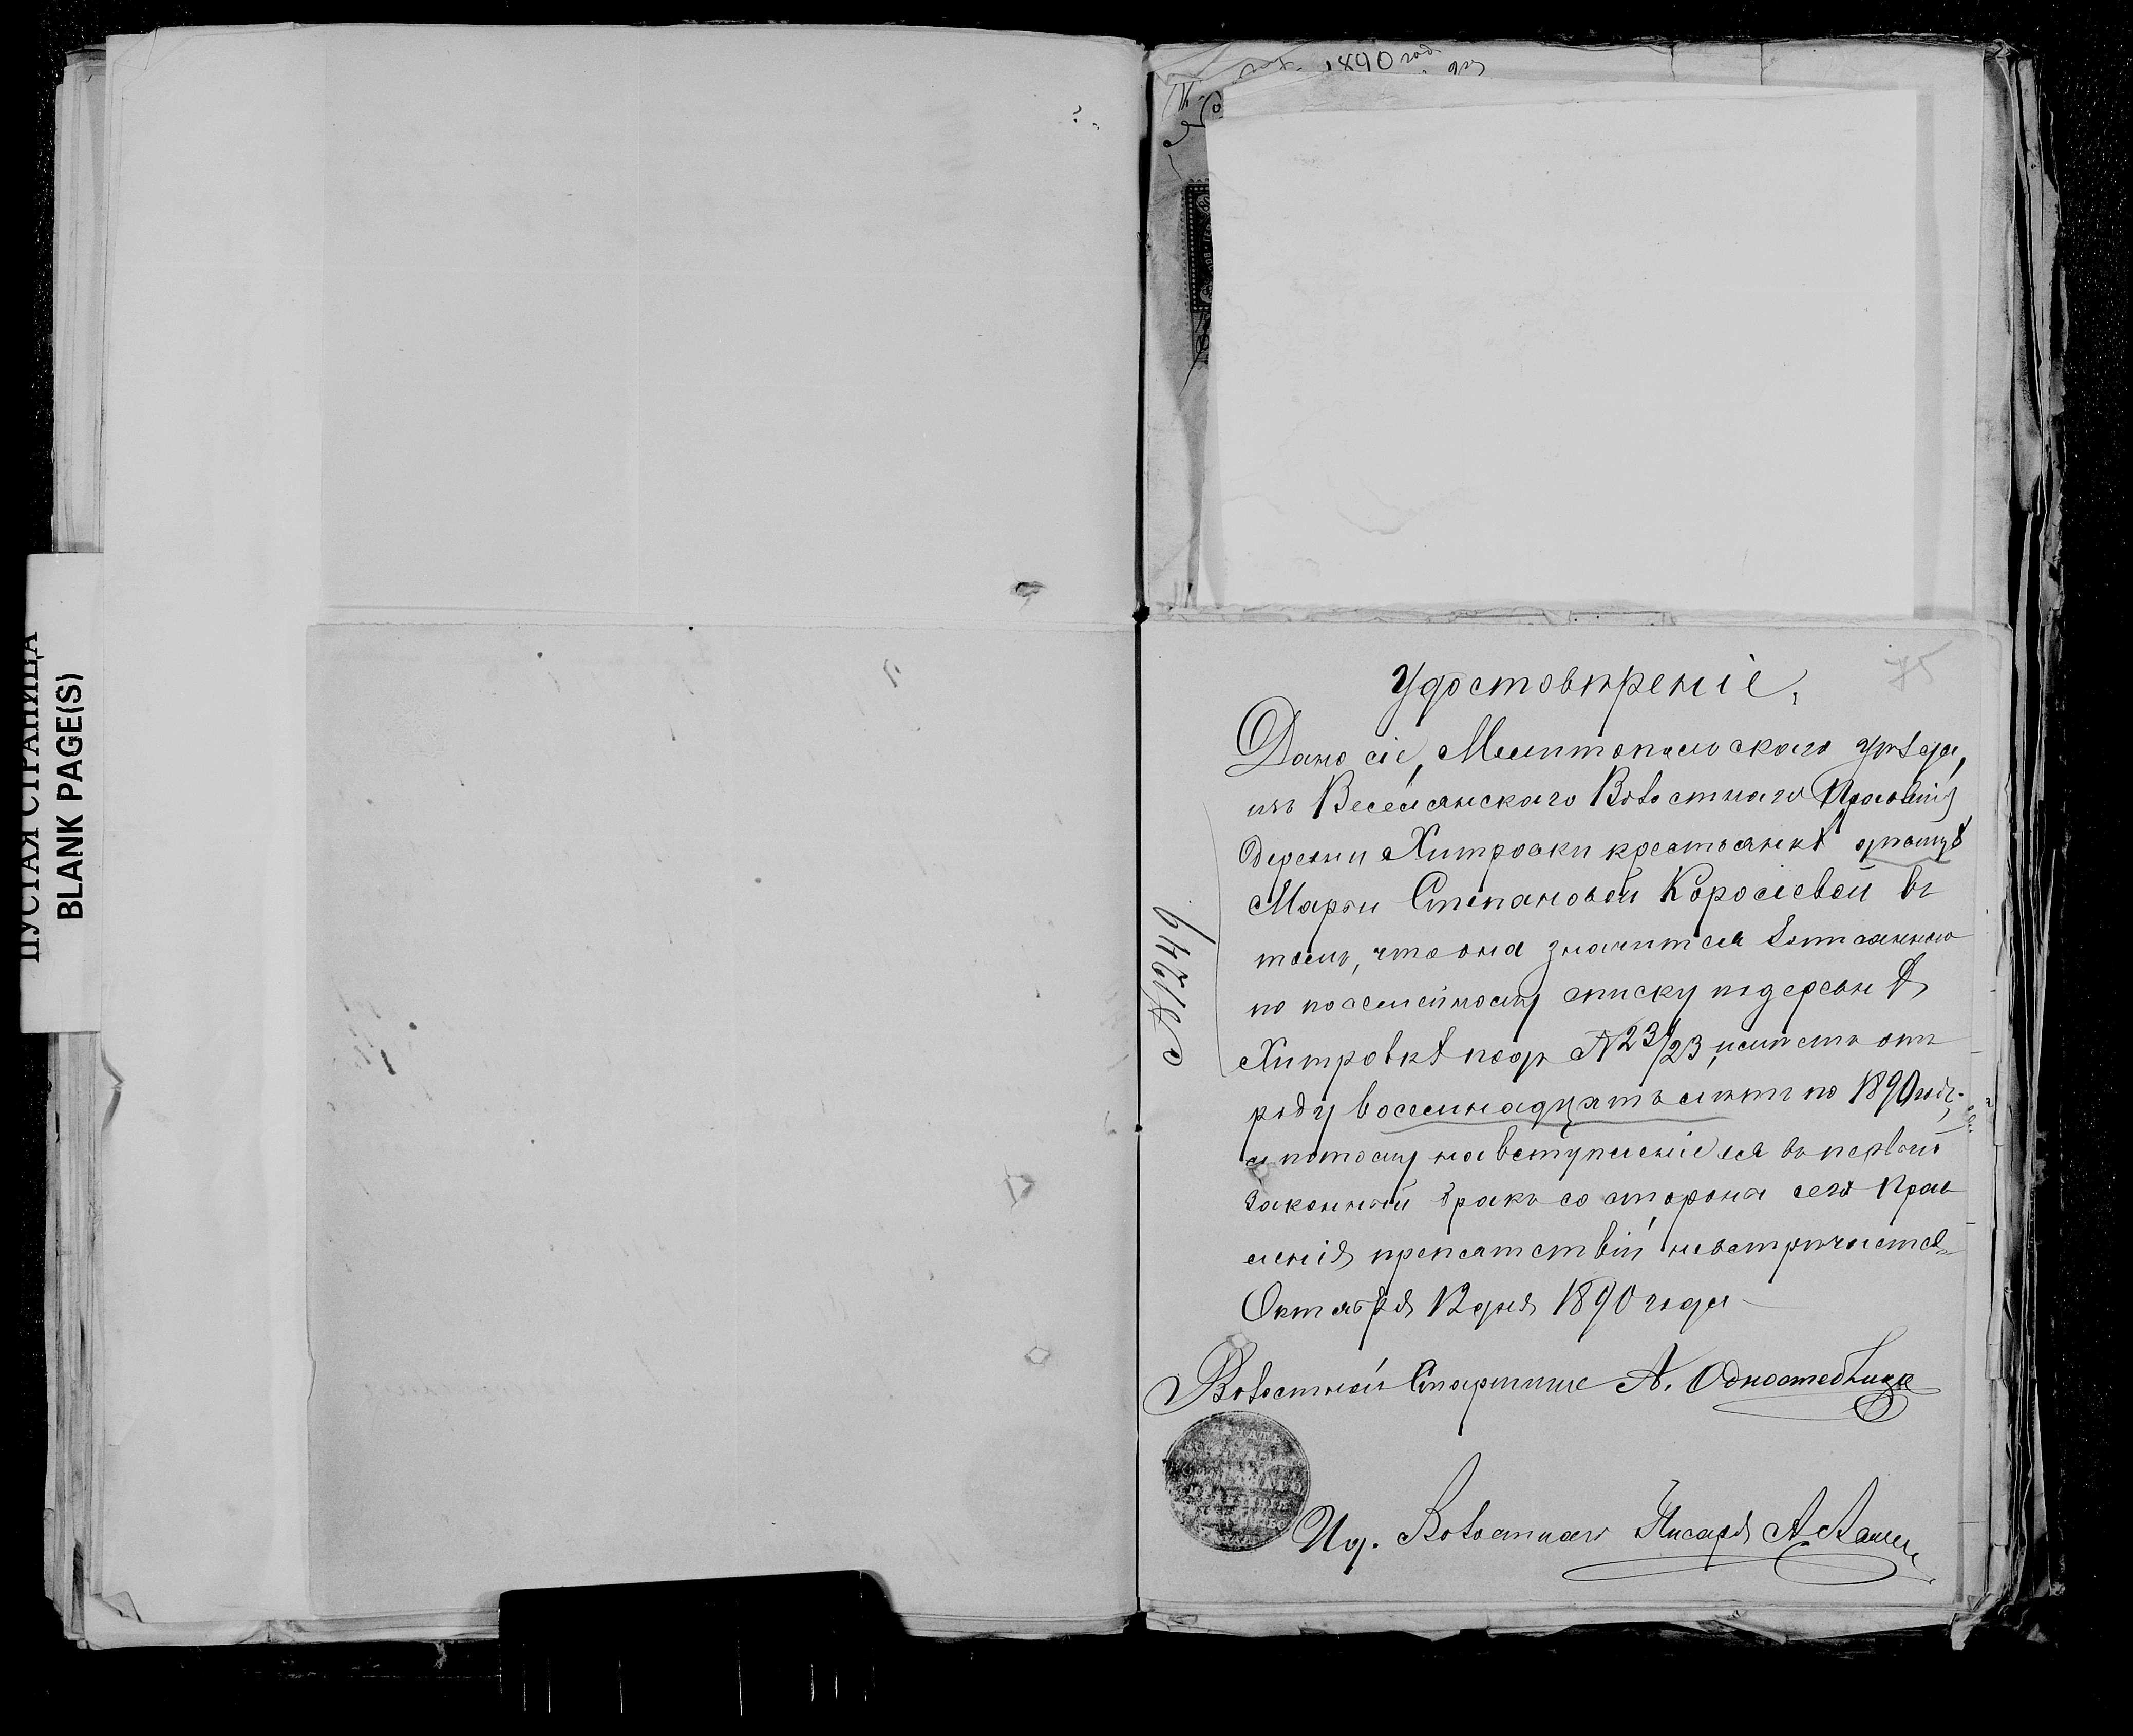 ПУСТАЯ СТРАНИЦА
BLANK PAGE(S)
1890 год
75
Удостовѣреніе.
Дано сіе, Мелитопольскаго уѣзда,
изъ Веселянскаго Волостнаго Правленія
Деревни Хитровки крестьянкѣ дѣвицѣ
Марѳи Степановой Королевой въ
томъ, что она значится вписанною
по посемейному списку подеревнѣ
Хитровкѣ подъ № 23/23, имѣетъ отъ
роду восемнадцать лѣтъ по 1890 годъ,
а потому на вступленіе ея въ первый
Законный бракъ со сторона сего Прав
ленія препятствій невстрѣчается
Октября 12 дня 1890 года
Волостной Старшина А.
Ид. Волостнаго Писаря А.
№ 1249